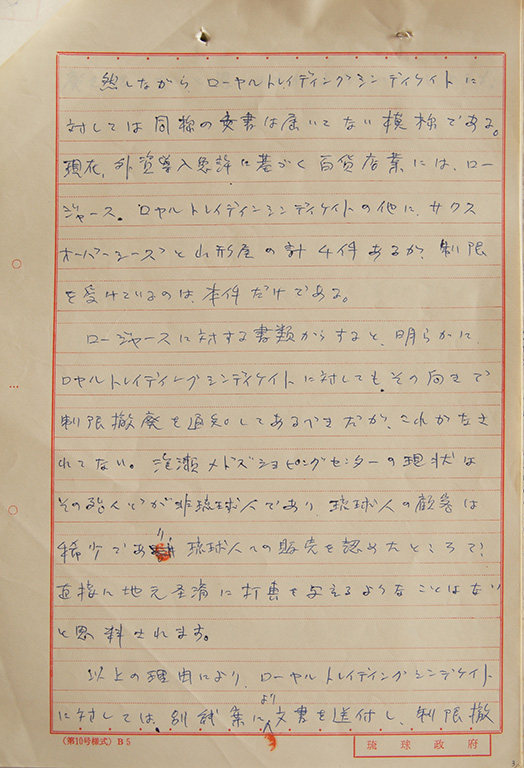 然しながら ローヤルトレイディングシンディケイトに
対しては同様の文書は届いてない模様である。
現在、外資導入免許に基づく百貨店業には、ロー
ジャース。ロヤルトレイディンシンディケイトの他に、サクス
オーバーシーズと山形屋の計4件あるが、制限
を受けているのは、本件だけである。
ロージャースに対する書類からすると、明らかに
ロヤルトレイディーグシンディケイトに対してもその向きで
制限撤廃を通知してあるべきだが、これがなさ
れてない。泡瀬メドズショピングセンターの現状は
その殆んどが非琉球人であり、琉球人の顧客は
稀少であり、琉球人への販売を認めたところで、
直接に地元経済に打撃を与えるようなことはない
と思料されます。
以上の理由により、ローヤルトレイディングシンディケイト
に対しては、別紙案により文書を送付し、制限撤
(第10号様式) B5
琉球政府